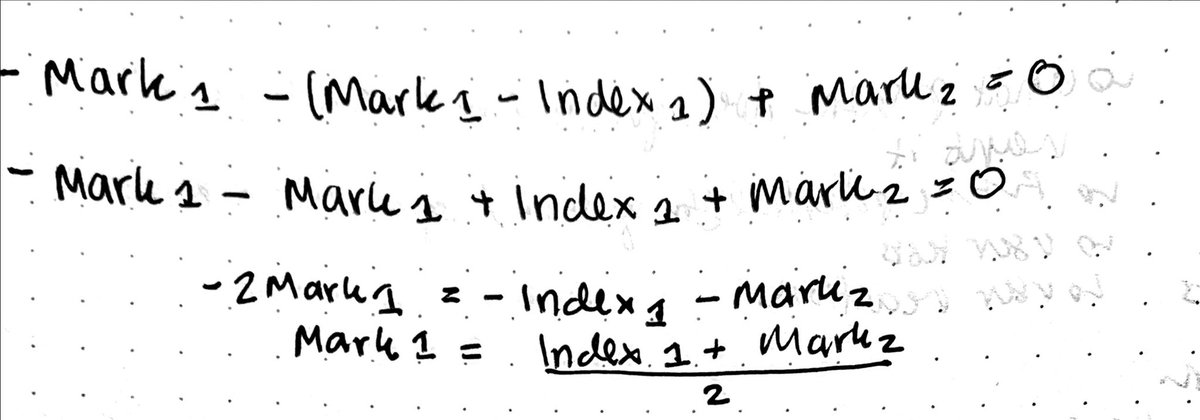 - Mark 1 - (Mark 1 - Index 1) + Mark 2 = 0
- Mark 1 - Mark 1 + Index 1 + Mark 2 = 0
- 2 Mark 1 = - Index 1 - Mark 2
Mark 1 = Index 1 + Mark 2
2